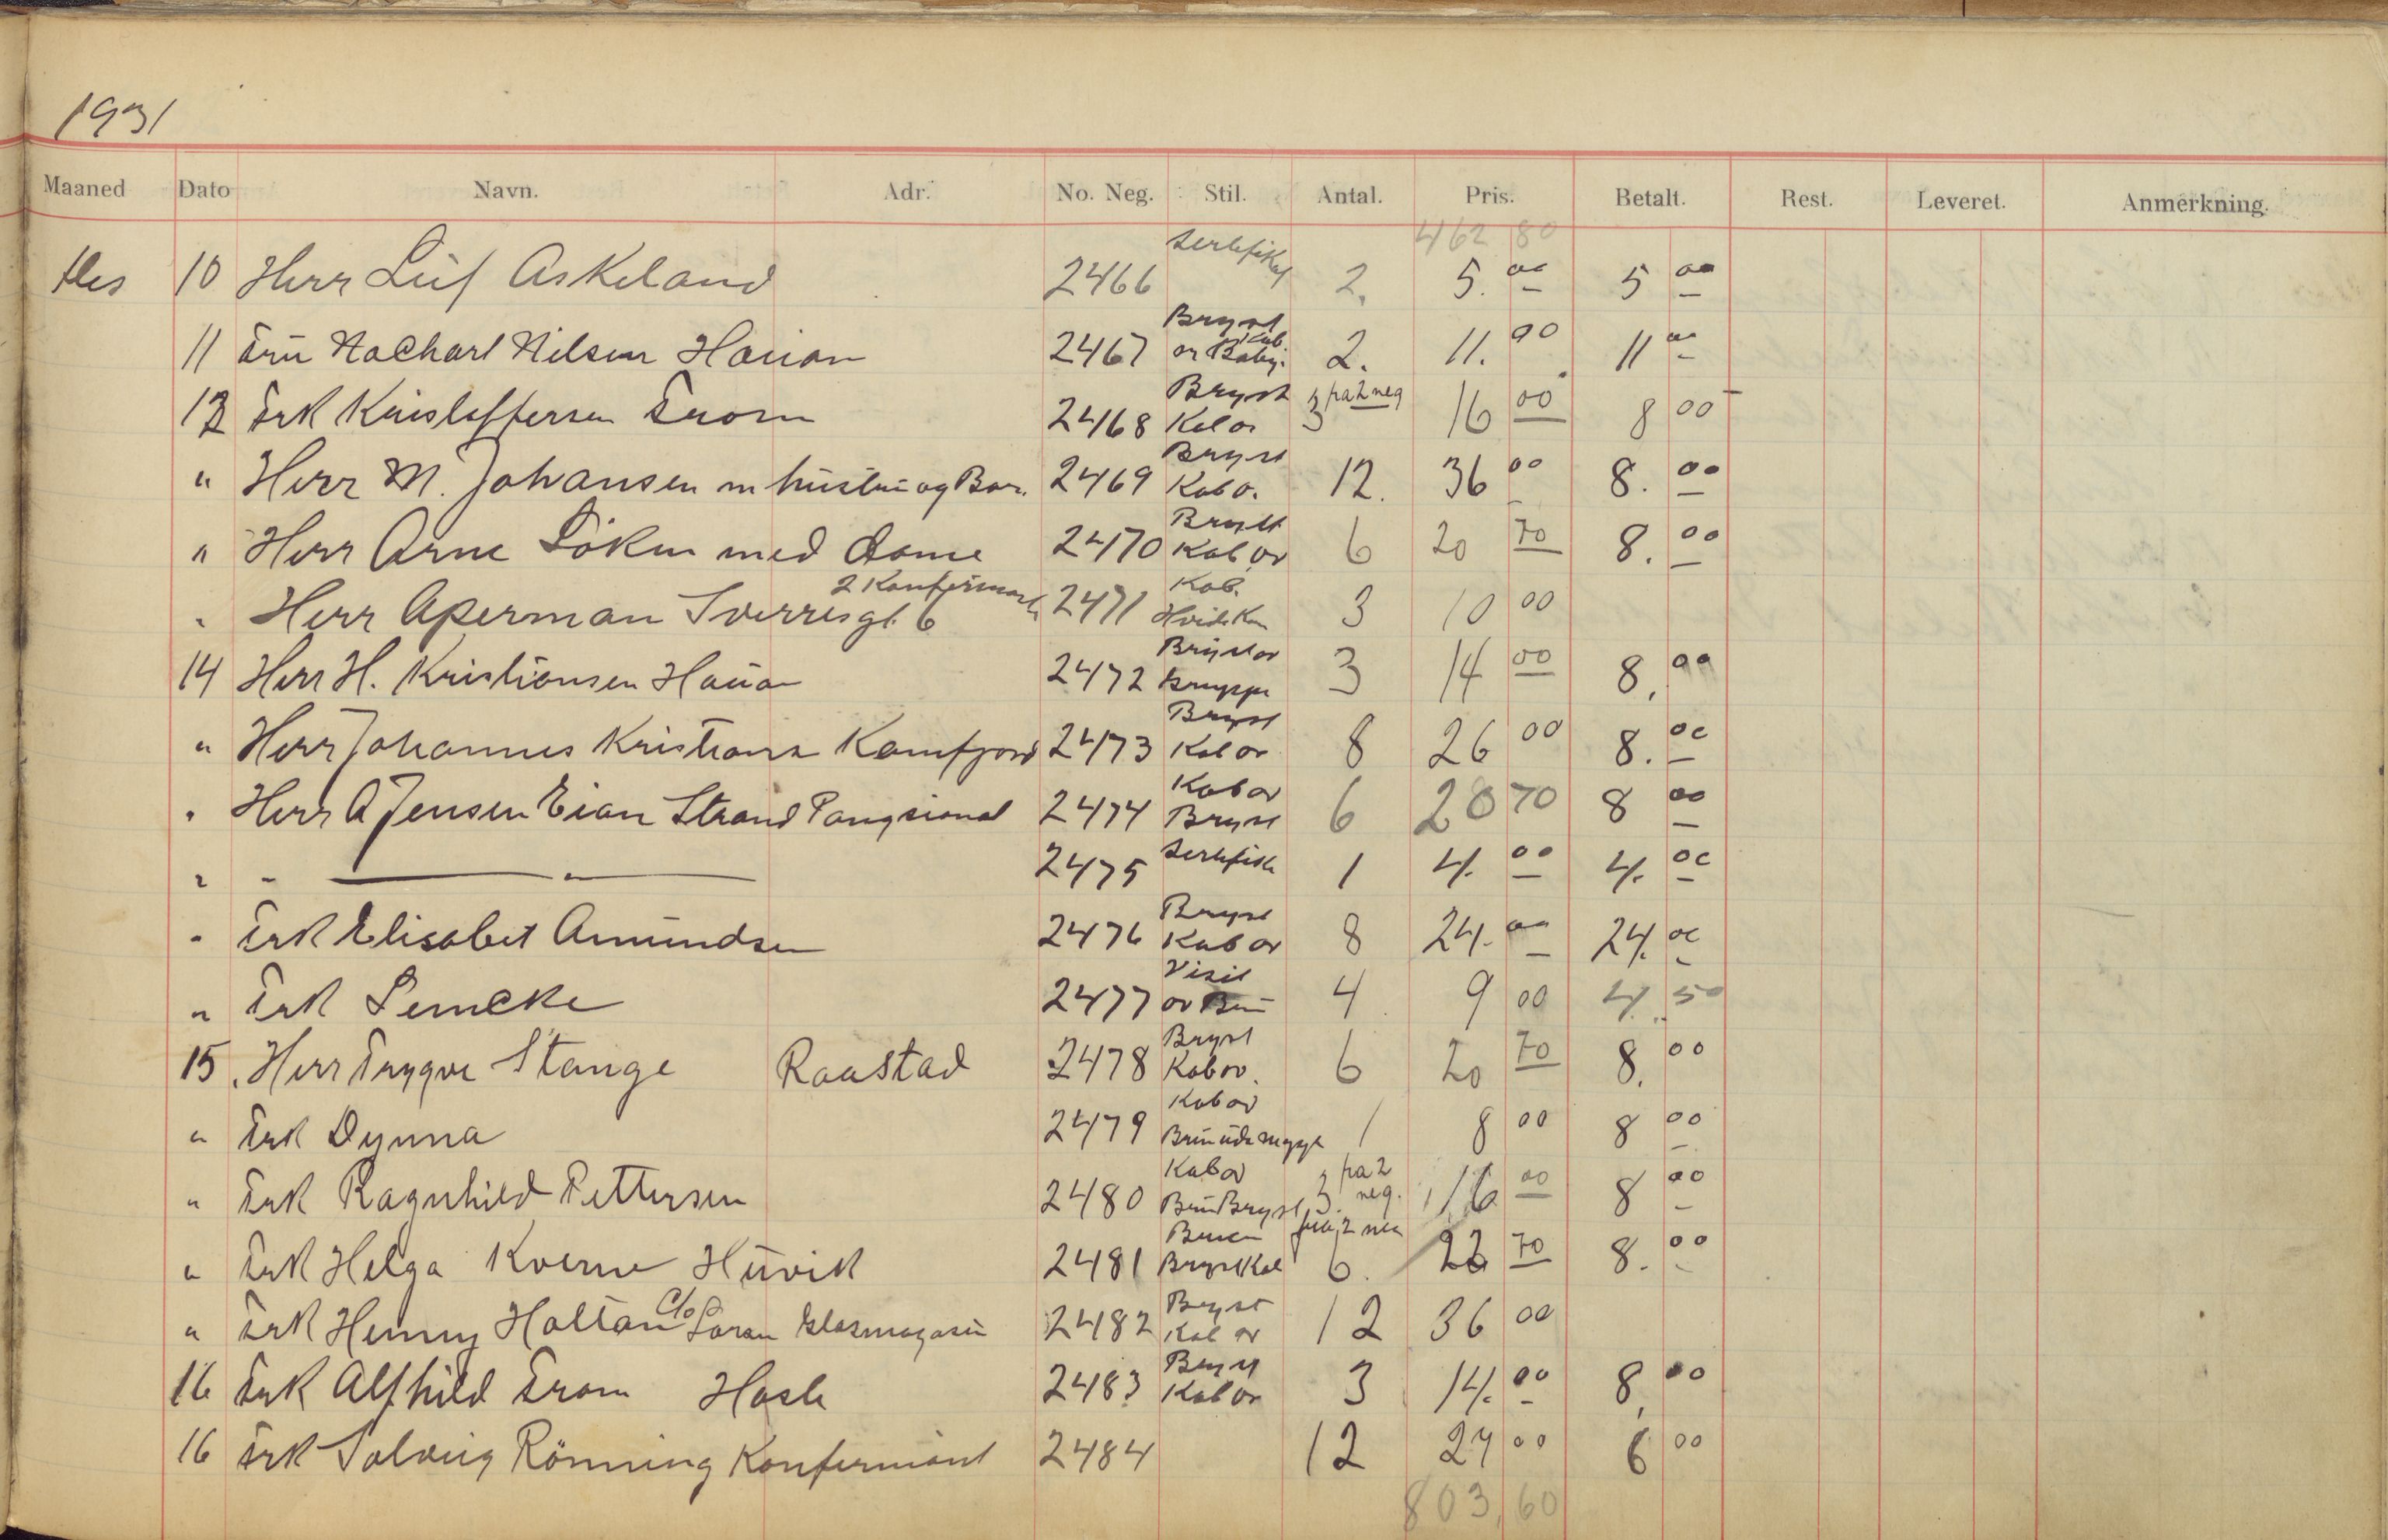 1931
Maaned Dato Navn. Adr. No. Neg. Stil. Antal. Pris. Betalt. Rest. Leveret. Anmerkning.
462 80
10 Herr Leif Askeland 2466 Sertifikat 2. 5. 00 5 00
11 Fru Nilsen Hauan 2467 Bryst 2. 11. 00 11 00
Frk Kristoffersen Trom 2468 Bryst 3 pa 2 neg 16 00 8 00
" Herr M. Johansen m hustru og Bar. 2469 Bryst Kab o. 12. 36 00 8. 00
" Herr Arne Löken med dame 2470 Bryst Kab ov 6 20 70 8. 00
" Herr Aperman Sverresgt. 6 2471 Kab. 3 10 00
14 Herr H. Kristiansen Hauan 2472 Bryst ov Gruppe 3 14 00 8. 00
" Herr Johannes Kristians Kamfjord 2473 Bryst Kab ov 8 26 00 8. 00
" Herr A Jensen Eian Strand Pangsionat 2474 Kab ov Bryst 6 20 70 8 00
" - " 2475 Sertifik 1 4. 00 4. 00
" Frk Elisabet Amundsen 2476 Bryst Kab ov 8 24. 00 24. 00
" Frk Lemcke 2477 Visit ov Brun 4 9 00 4. 50
15. Herr Trygve Stange Raastad 2478 Bryst Kab ov. 6 20 70 8. 00
" Frk Dynna 2479 Kab ov 1 8 00 8 00
" Frk Ragnhild Pettersen 2480 Kab ov Brun Bryst 3 pa 2 neg. 16 00 8 00
" Frk Helga Kverne Huvik 2481 Bryst Kab 6. 70 8. 00
" Frk Henny Holtan C/o Larsen Glasmagasin 2482 Bryst Kab ov 12 36 00
16 Frk Alfhild Trom Hasle 2483 Bryst Kab ov 3 14. 00 8. 00
16 Frk Solveig Rönning Konfermant 2484 12 27 00 6 00
803,60